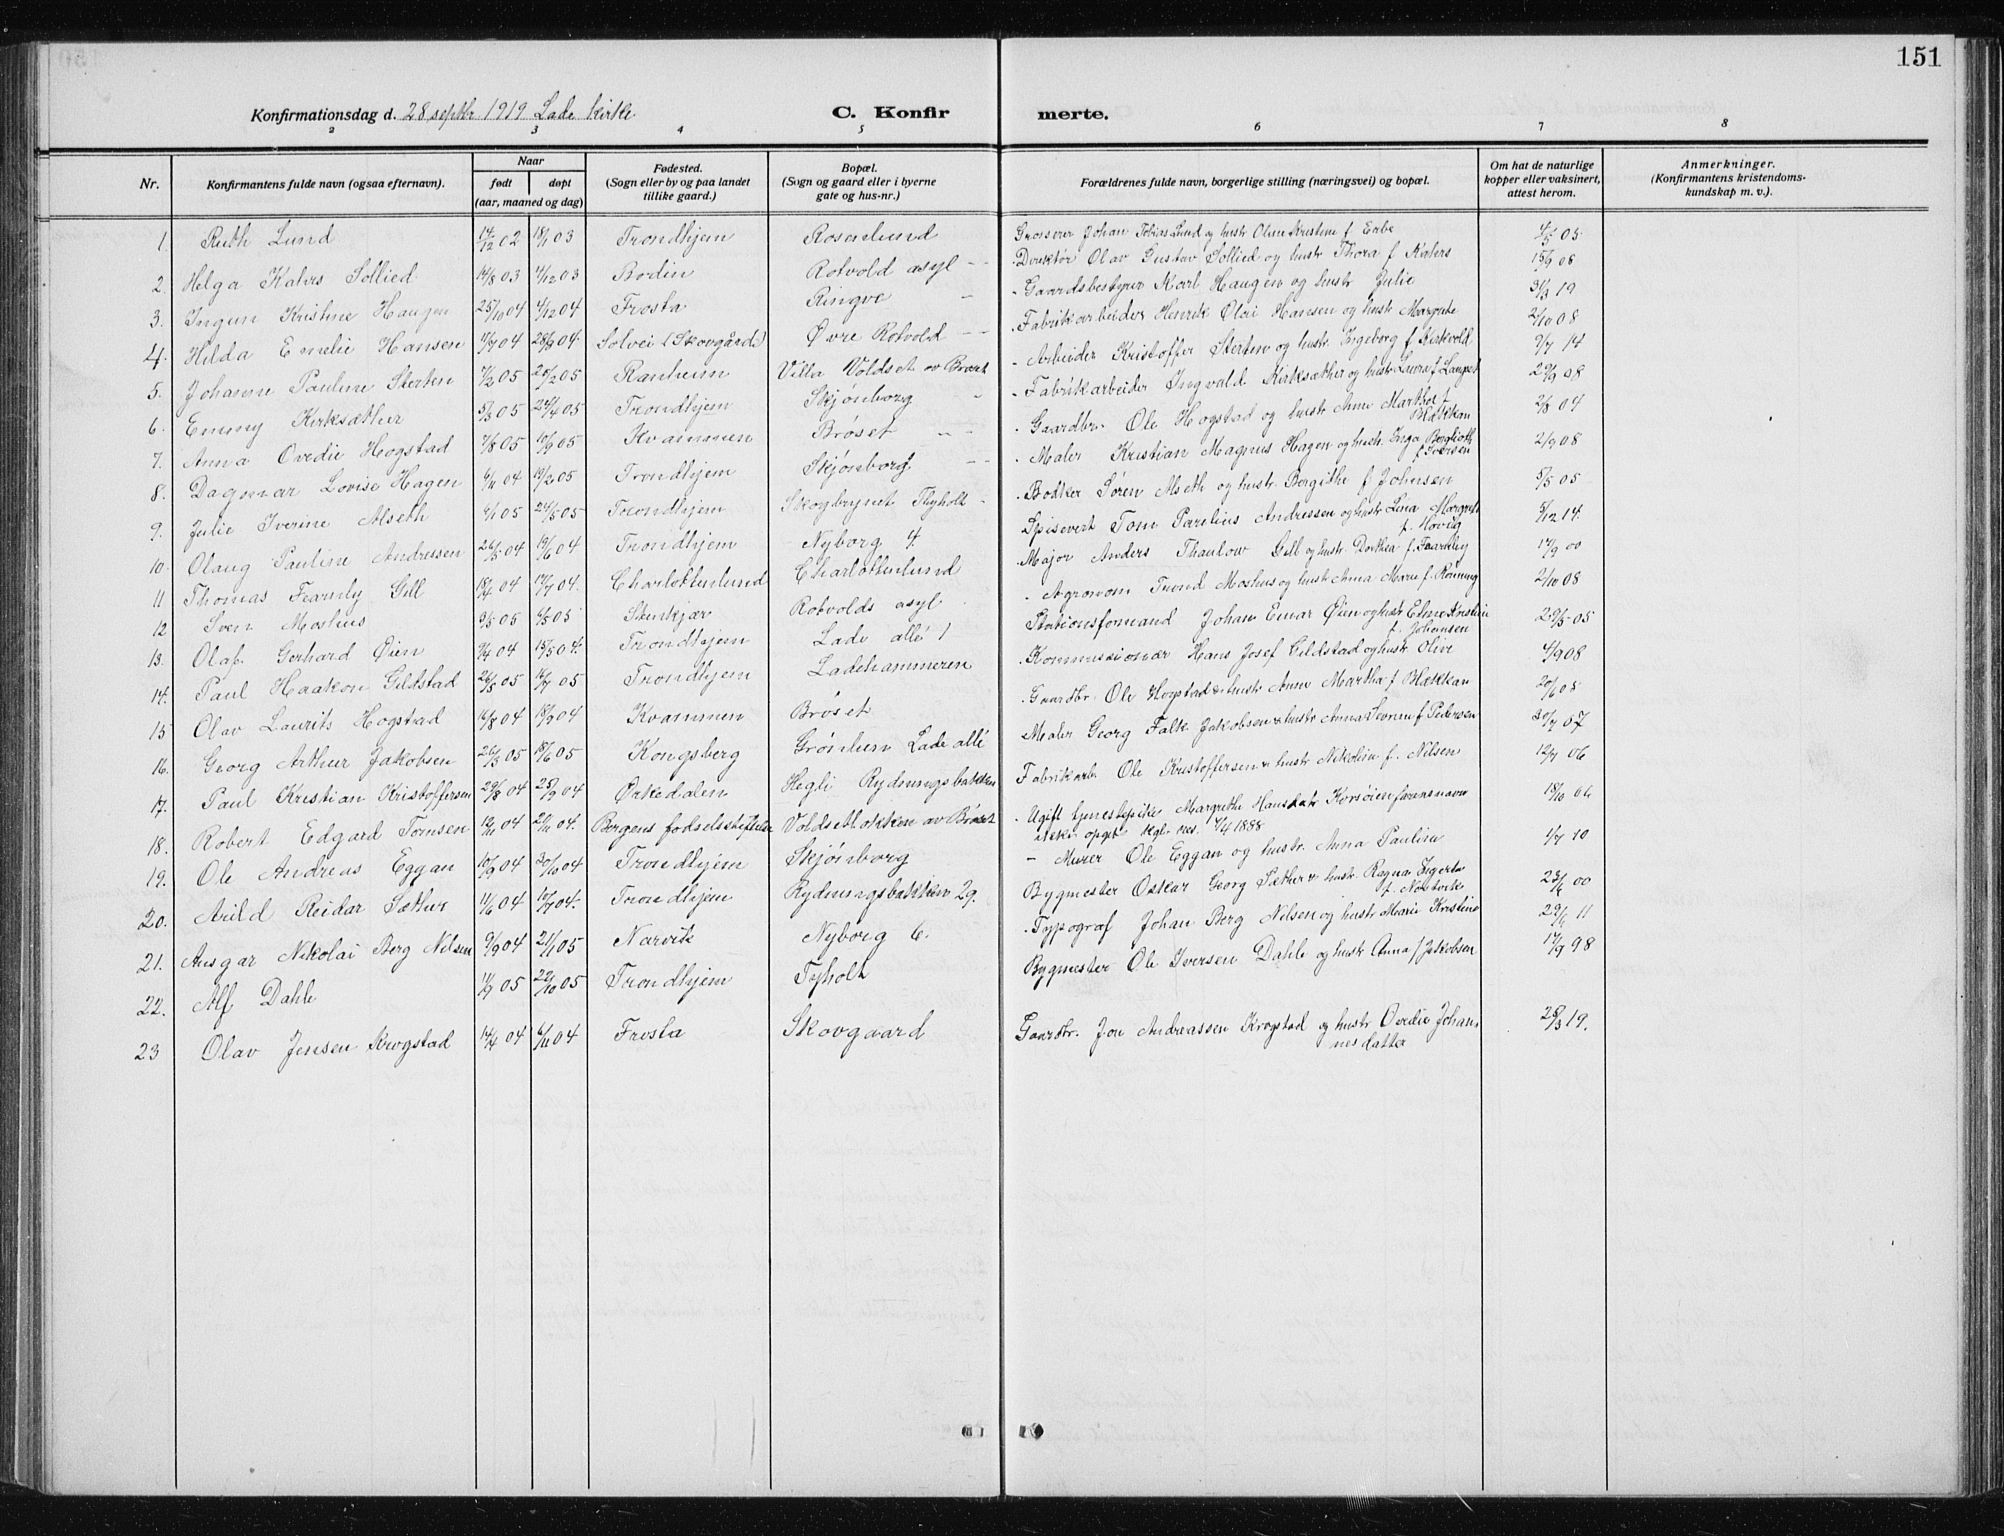 151
Konfirmationsdag d. 28 septbr 1919 Lade kirke
C. Konfirmerte.
2 3 4 5 6 7 8
Nr. Konfirmantens fulde navn (ogsaa efternavn). Naar født døpt (aar, maaned og dag) Fødested. (Sogn eller by og paa landet tillike gaard.) Bopæl. (Sogn og gaard eller i byerne gate og hus-nr.) Forældrenes fulde navn, borgerlige stilling (næringsvei) og bopæl. Om hat de naturlige kopper eller vaksinert, attest herom. Anmerkninger. (Konfirmantens kristendomskundskap m. v.).
1. Ruth Lund 14/12 02 18/1 03 Trondhjem Rosenlund Grosserer Johan Tobias Lund og hustr Oline Kristine f Erbe 4/5 05
2. Helga Kahrs Sollied 14/8 03 4/12 03 Bodin Rotvold asyl Direktør Olav Gustav Sollied og hustr Thora f Kahrs 15/9 08
3. Ingun Kristine Haugen 25/10 04 4/12 04 Frosta Ringve Gaardsbestyrer Karl Haugen og hustr Julie 31/3 19
4. Hilda Emelie Hansen 11/7 04 28/8 04 Solvei (Skovgård) Øvre Rotvold Fabrikarbeider Henrik Olai Hansen og hustr Margrete 2/10 08
5. Johanne Pauline Sterten 7/2 05 20/2 05 Ranheim Villa Voldset av Brøset Arbeider Kristoffer Sterten og hustr. Ingeborg f Kirkvold 9/7 14
6. Emmy Kirksæther 5/3 05 24/4 05 Trondhjem Skjønborg Fabrikarbeider Ingvald Kirksæther og hustr Laura f Langset 29/9 08
7. Anna Ovedie Hogstad 7/8 05 10/9 05 Kvammen Brøset Gaardbr. Ole Hogstad og hustr Anne Martha f Blækkan 2/8 04
8. Dagmar Lovise Hagen 6/11 04 19/2 05 Trondhjem Skjønborg Maler Kristian Magnus Hagen og hustr. Inga Berglioth f Iversen 2/9 08
9. Julie Iverine Alseth 4/1 05 24/5 05 Trondhjem Skogbrynet Tyholt Bødker Søren Alseth og hustr. Bergithe f Johnsen 5/5 05
10. Olaug Pauline Andressen 26/5 04 19/6 04 Trondhjem Nyborg 4. Spisevert Tom Parelius Andressen og hustr Lina Margrete f. Hovig 5/12 14
11 Thomas Fearnly Gill 18/4 04 17/7 04. Charlottenlund Charlottenlund Major Anders Thaulow Gill og hustr. Dorthea f. Fearnley 17/9 00
12 Sven Moshus 3/3 05 6/5 05 Stenkjær Rotvolds asyl Agronom Trond Moshus og hustr Anna Marie f. Rønning 2/10 08
13. Olaf Gerhard Øien 3/4 04 15/5 04. Trondhjem Lade allé 1 Stationsformand Johan Einar Øien og hustr Eline Kristine f. Johansen 29/5 05
14. Paul Haakon Gildstad 26/5 05 16/7 05 Trondhjem Ladehammeren Kommisionær Hans Josef Gildstad og hustr Olive 4/9 08
15 Olav Laurits Hogstad 16/8 04 18/9 04 Kvammen Brøset Gaardbr. Ole Hogstad & hustr Anne Martha f Blækkan 20/6 05
16. Georg Arthur Jakobsen 26/3 05 18/6 05 Kongsberg Grønlien Lade allé Maler Georg Falk Jakobsen & hustr Anna f Pedersen 30/7 07
17. Paul Kristian Kristoffersen 29/8 04 25/9 04 Ørkedalen Hegli Rydningsbakken Fabrikarb. Ole Kristoffersen & hustr Nikoline f. Nilsen 12/7 06
18. Robert Edgard Tomsen 12/11 04 20/11 04. Bergens fødselsstiftelse Voldsetløkken av Brøset Ugift tjenestepike Margrethe Hansdatr Korsøien farens navn ikke opgit kgl. res. 7/4 1888 18/10 06
19. Ole Andreas Eggan 10/9 04 30/10 04 Trondhjem Skjønborg Murer Ole Eggan og hustr. Anna Pauline 1/7 10
20. Arild Reidar Sæther 11/6 04 10/7 04. Trondhjem Rydningsbakken 29. Bygmester Oskar Georg Sæther & hustr. Ragna Ingerta f. Nordvik 23/6 00
21. Ansgar Nikolai Berg Nilsen 9/9 04 21/1 05 Narvik Nyborg 6. Typograf Johan Berg Nilsen og hustr Marie Kristine 29/6 11
22. Alf Dahle 11/9 05 22/10 05 Trondhjem Tyholt Bygmester Ole Iversen Dahle og hustr Anna f Jakobsen 17/9 98
23 Olav Jensen Krogstad 14/4 04 6/11 04 Frosta Skovgaard Gaardbr. Jon Andreassen Krogstad og hustr Ovedie Johannesdatter 28/3 19.